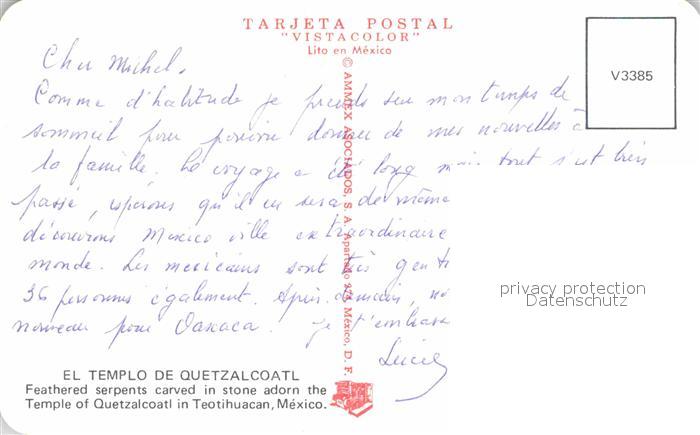 TARJETA POSTAL
"VISTACOLOR"
Lito en México
V3385
Cher Michel.
Comme d'habitude je prends sur mon temps de
sommeil pour pouvoir donner de mes nouvelles à
la famille. Le voyage a été long mais tout s'est bien
passé, espérons qu'il en sera de même
découvrons Mexico ville extraordinaire
monde. Les mexicains sont très genti
36 personnes également. Après demain, no
nouveau pour Oaxaca. Je t'embrasse
Lucie
© AMMEX ASOCIADOS, S. A. Apartado México, D. F.
privacy protection
Datenschutz
EL TEMPLO DE QUETZALCOATL
Feathered serpents carved in stone adorn the
Temple of Quetzalcoatl in Teotihuacan, México.